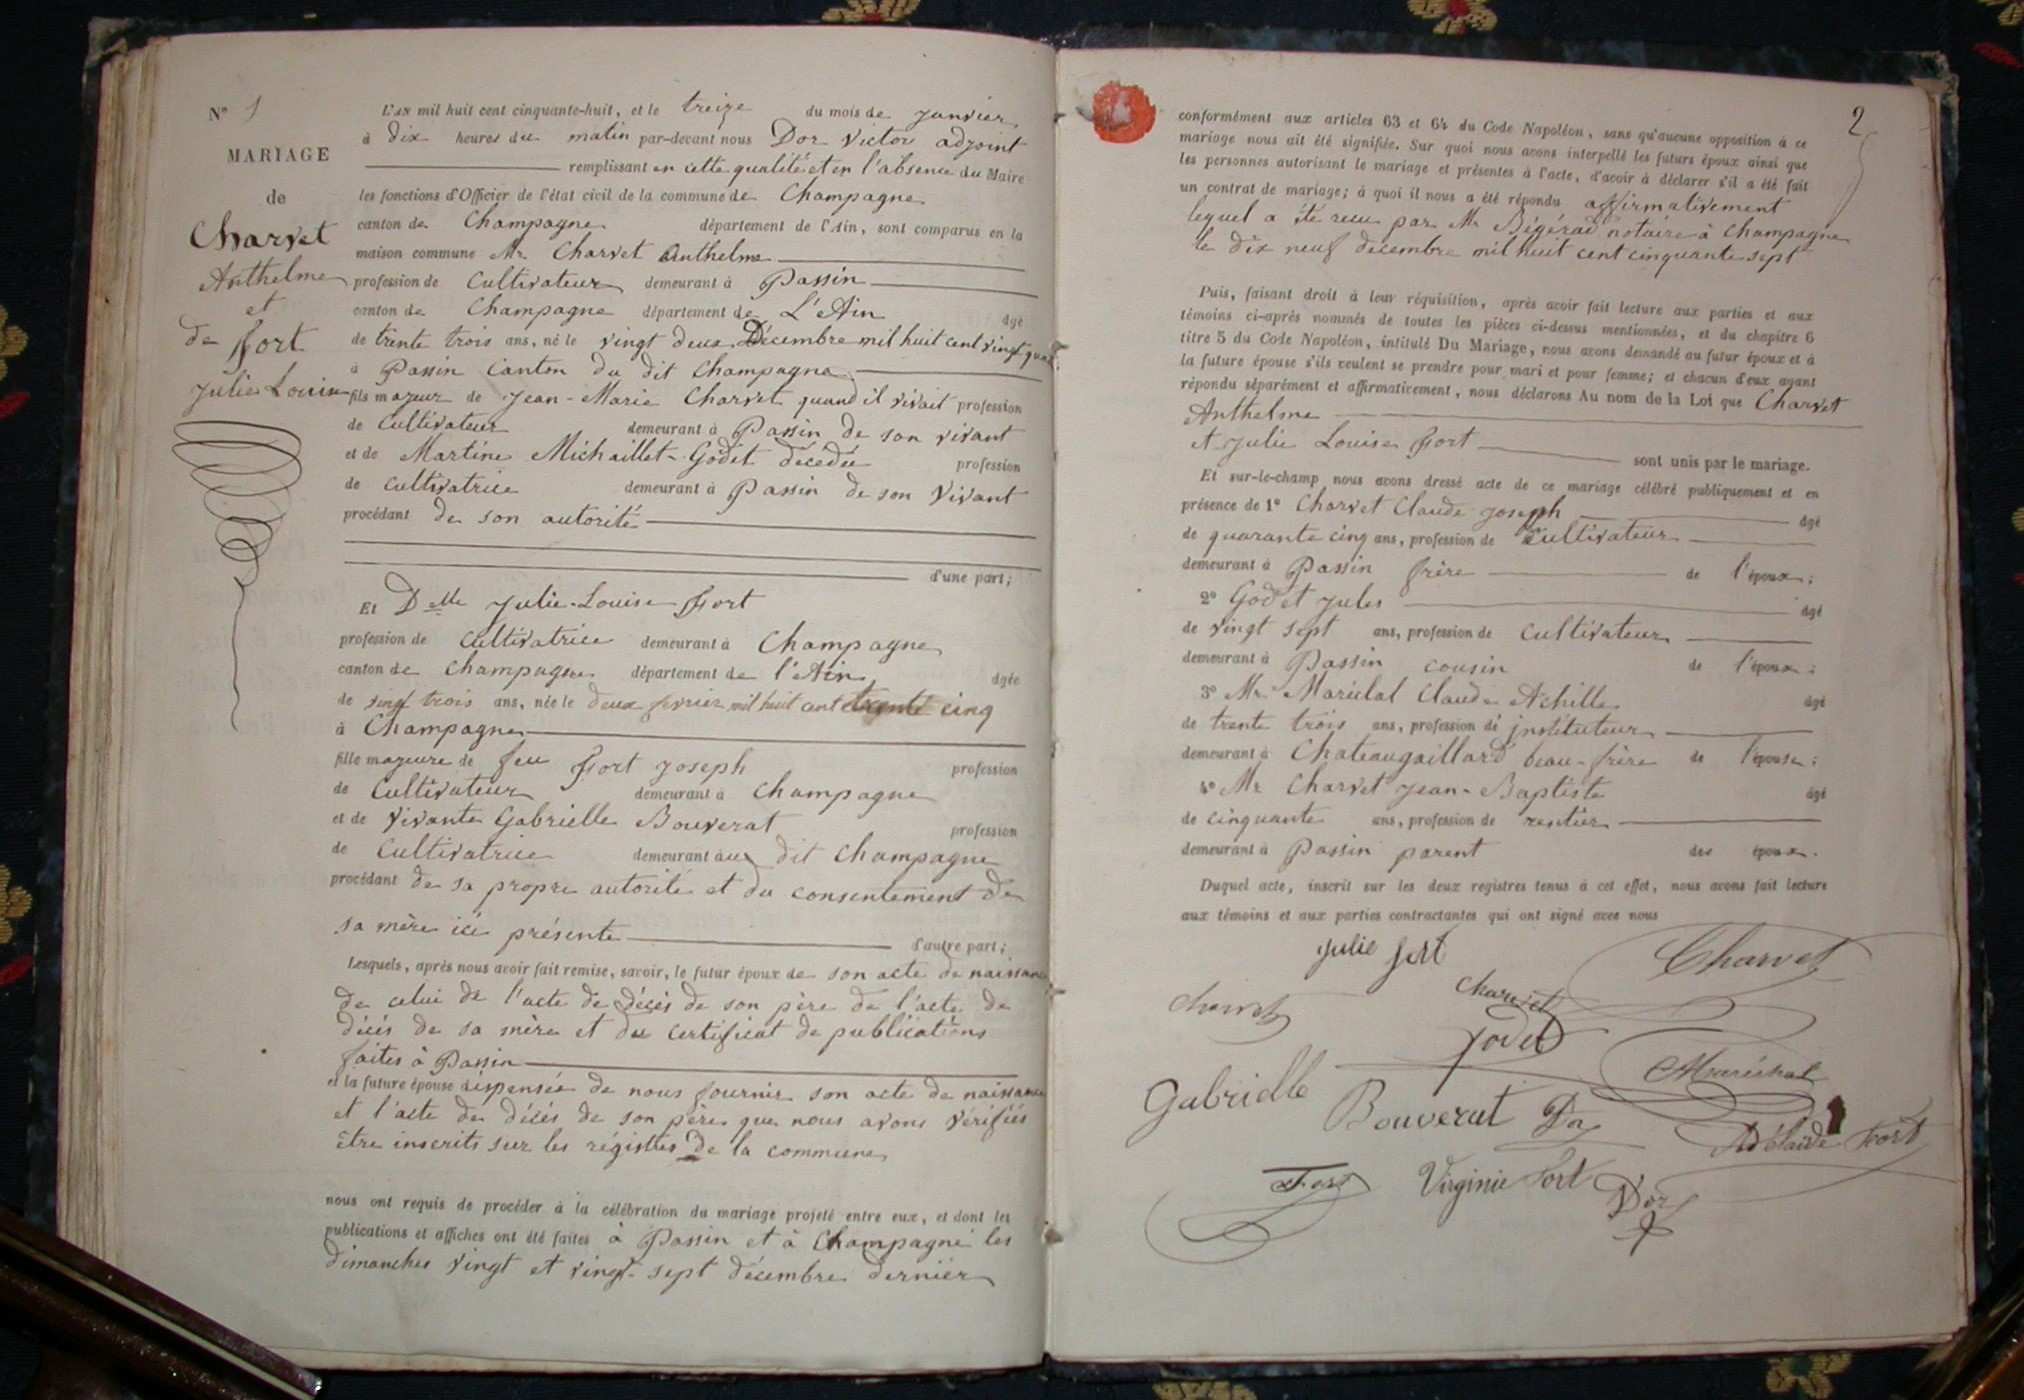 N° 1
MARIAGE
de
Charvet
Anthelme
et
de Fort
Julie Louise
L'an mil huit cent cinquante-huit, et le treize du mois de janvier
à dix heures du matin par-devant nous Dor Victor adjoint
remplissant en cette qualité et en l'absence du Maire
les fonctions d'Officier de l'état civil de la commune de Champagne
canton de Champagne département de l'Ain, sont comparus en la
maison commune Mr Charvet Anthelme
profession de Cultivateur demeurant à Passin
canton de Champagne département de L'Ain âgé
de trente trois ans, né le vingt deux Décembre mil huit cent vingt quatre
à Passin Canton du dit Champagne
fils majeur de Jean-Marie Charvet quand il vivait profession
de Cultivateur demeurant à Passin de son vivant
et de Martine Michaillet-Godet décédée profession
de cultivatrice demeurant à Passin de son vivant
procédant de son autorité
d'une part;
Et Delle Julie-Louise Fort
profession de cultivatrice demeurant à Champagne
canton de Champagne département de l'Ain, âgée
de vingt trois ans, née le deux février mil huit cent trente cinq
à Champagne
fille majeure de feu Fort Joseph profession
de Cultivateur demeurant à Champagne
et de vivante Gabrielle Bouverat profession
de Cultivatrice demeurant au dit Champagne
procédant de sa propre autorité et du consentement de
sa mère ici présente d'autre part;
Lesquels, après nous avoir fait remise, savoir, le futur époux de son acte de naissance
de celui de l'acte de décès de son père de l'acte de
décès de sa mère et du certificat de publications
faites à Passin
et la future épouse dispensée de nous fournir son acte de naissance
et l'acte de décès de son père que nous avons vérifiés
être inscrits sur les régistres de la commune
nous ont requis de procéder à la célébration du mariage projeté entre eux, et dont les
publications et affiches ont été faites à Passin et à Champagne les
dimanches vingt et vingt-sept décembre dernier
2
conformément aux articles 63 et 64 du Code Napoléon, sans qu'aucune opposition à ce
mariage nous ait été signifiée. Sur quoi nous avons interpellé les futurs époux ainsi que
les personnes autorisant le mariage et présentes à l'acte, d'avoir à déclarer s'il a été fait
un contrat de mariage; à quoi il nous a été répondu affirmativement
lequel a été recu par Mr notaire à Champagne
le dix neuf décembre mil huit cent cinquante sept
Puis, faisant droit à leur réquisition, après avoir fait lecture aux parties et aux
témoins ci-après nommés de toutes les pièces ci-dessus mentionnées, et du chapitre 6
titre 5 du Code Napoléon, intitulé Du Mariage, nous avons demandé au futur époux et à
la future épouse s'ils veulent se prendre pour mari et pour femme; et chacun d'eux ayant
répondu séparément et affirmativement, nous déclarons Au nom de la Loi que Charvet
Anthelme
et Julie Louise Fort sont unis par le mariage.
Et sur-le-champ nous avons dressé acte de ce mariage célébré publiquement et en
présence de 1° Charvet Claude Joseph âgé
de quarante cinq ans, profession de cultivateur
demeurant à Passin frère de l'époux;
2° Godet Jules âgé
de vingt sept ans, profession de cultivateur
demeurant à Passin cousin de l'époux;
3° Mr Claude Achille âgé
de trente trois ans, profession de instituteur
demeurant à Chateaugaillard beau-frère de l'épouse;
4° Mr Charvet Jean-Baptiste âgé
de cinquante ans, profession de rentier
demeurant à Passin parent des époux.
Duquel acte, inscrit sur les deux registres tenus à cet effet, nous avons fait lecture
aux témoins et aux parties contractantes qui ont signé avec nous
Julie Fort
Charvet
Charvet
Charvet
Godet
Maréchal
Gabrielle
Bouverat
Dor
Adélaïde Fort
Fort
Virginie Fort
Dor